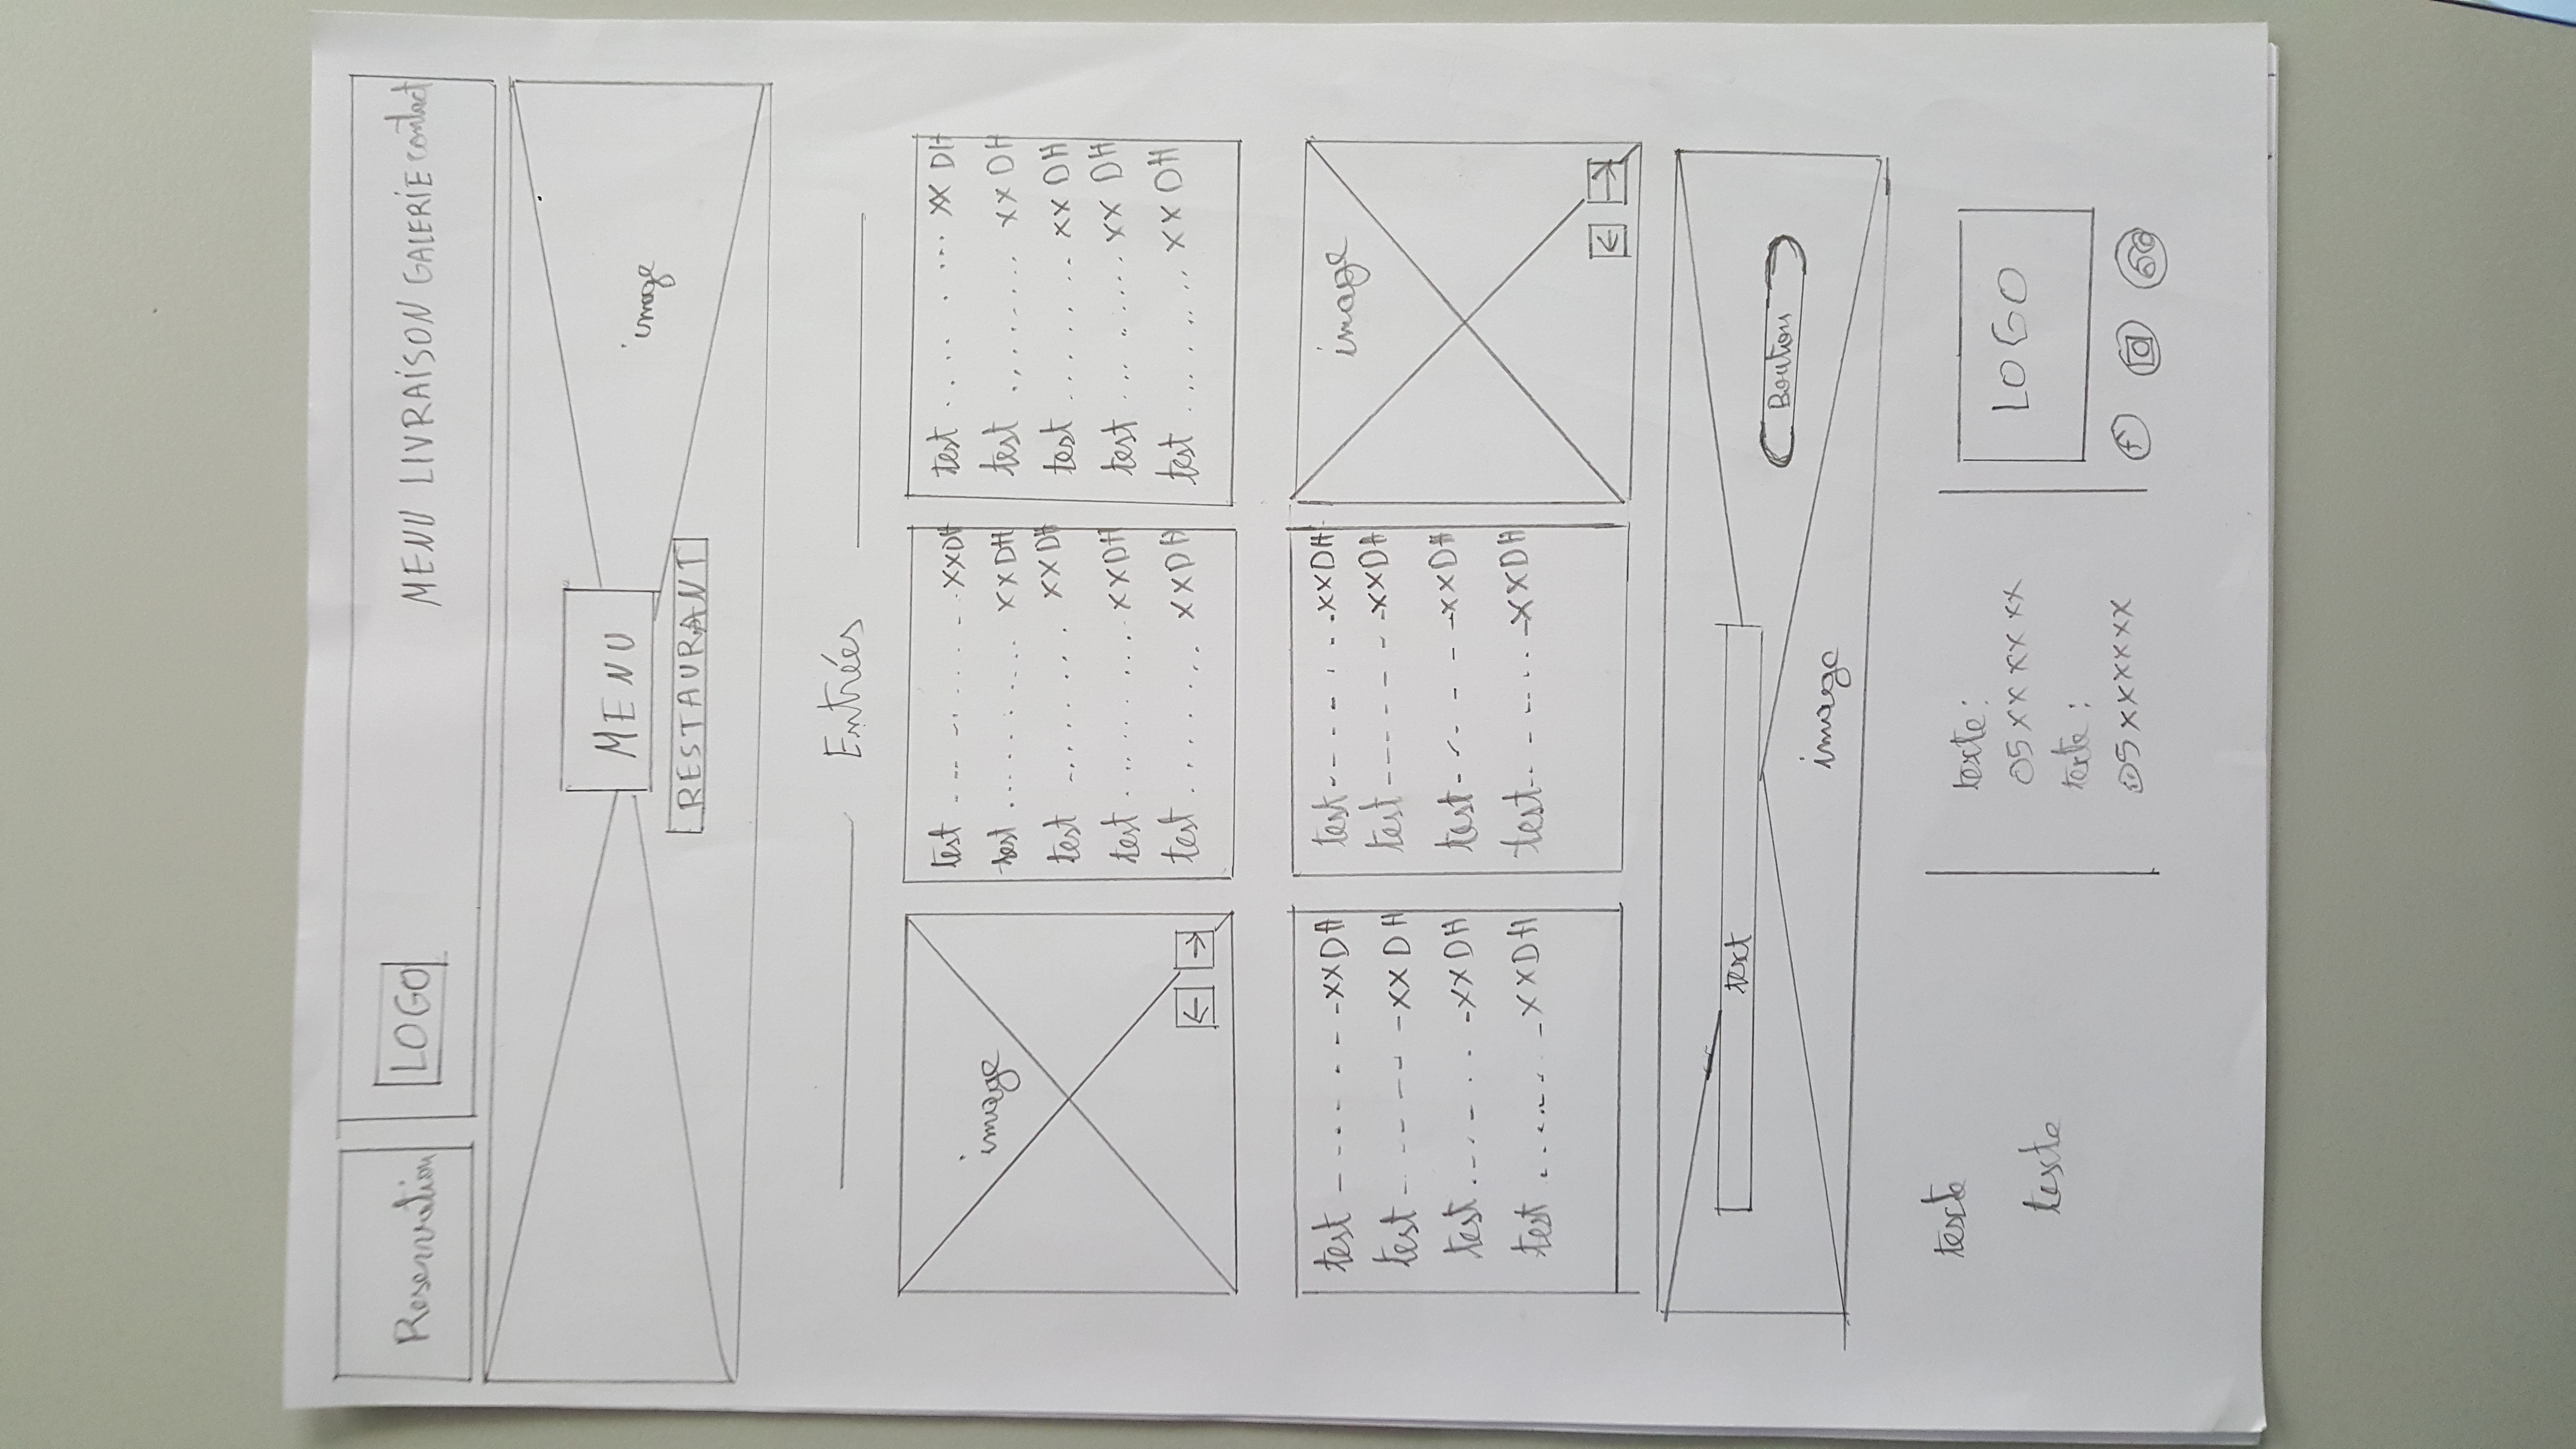 Reservation
LOGO
MENU LIVRAISON GALERIE contact
MENU
RESTAURANT
image
Entrées
image
← →
test XXDH
test XXDH
test XXDH
test XXDH
test XXDH
test XX DH
test XX DH
test XX DH
test XX DH
test XX DH
test - - - - - - -XXDH
test - - - - - - -XX DH
test - - - - - - -XX DH
test - - - - - - -XXDH
test - - - - - - -XXDH
test - - - - - - -XXDH
test - - - - - - -XXDH
test - - - - - - -XXDH
image
← →
text
image
Boutton
texte
texte
texte:
05 xx xx xx
texte:
05 xxxxxx
LOGO
f